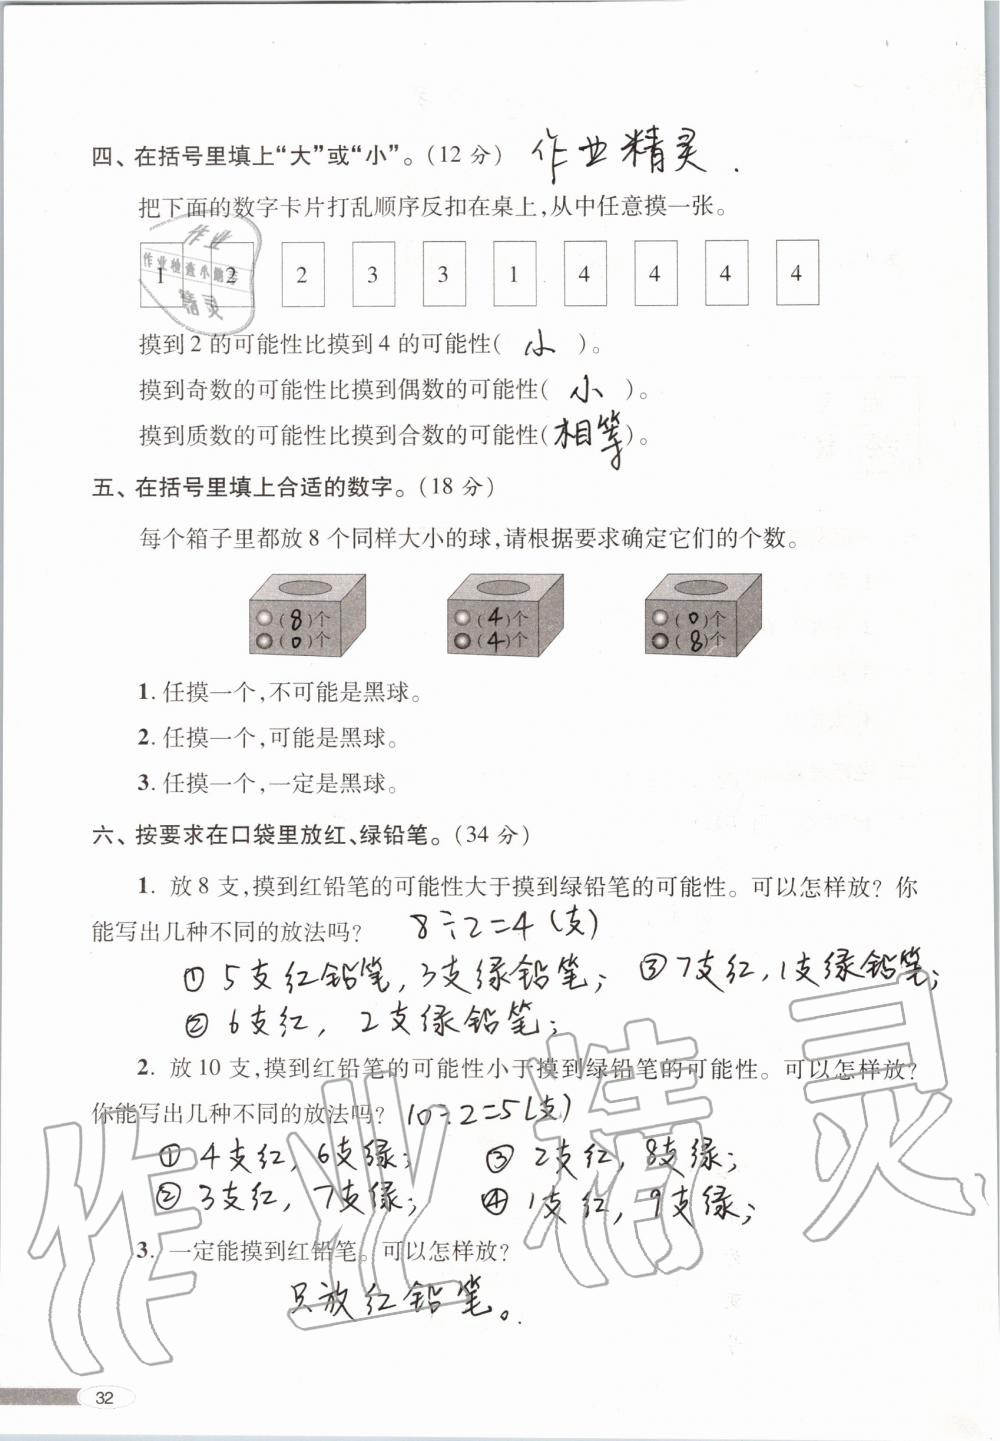 四、在括号里填上“大”或“小”。(12 分) 作业精灵.
把下面的数字卡片打乱顺序反扣在桌上,从中任意摸一张。
作业
作业检查小能手
精灵
1 2 2 3 3 1 4 4 4 4
摸到 2 的可能性比摸到 4 的可能性( 小 )。
摸到奇数的可能性比摸到偶数的可能性( 小 )。
摸到质数的可能性比摸到合数的可能性( 相等 )。
五、在括号里填上合适的数字。(18 分)
每个箱子里都放 8 个同样大小的球,请根据要求确定它们的个数。
( 8 )个 ( 4 )个 ( 0 )个
( 0 )个 ( 4 )个 ( 8 )个
1. 任摸一个,不可能是黑球。
2. 任摸一个,可能是黑球。
3. 任摸一个,一定是黑球。
六、按要求在口袋里放红、绿铅笔。(34 分)
1. 放 8 支,摸到红铅笔的可能性大于摸到绿铅笔的可能性。可以怎样放? 你
能写出几种不同的放法吗? 8÷2=4(支)
① 5支红铅笔,3支绿铅笔; ③ 7支红,1支绿铅笔;
② 6支红, 2支绿铅笔;
2. 放 10 支,摸到红铅笔的可能性小于摸到绿铅笔的可能性。可以怎样放?
你能写出几种不同的放法吗? 10÷2=5(支)
① 4支红,6支绿; ③ 2支红,8支绿;
② 3支红,7支绿; ④ 1支红,9支绿;
3. 一定能摸到红铅笔。可以怎样放?
只放红铅笔。
作业精灵
32